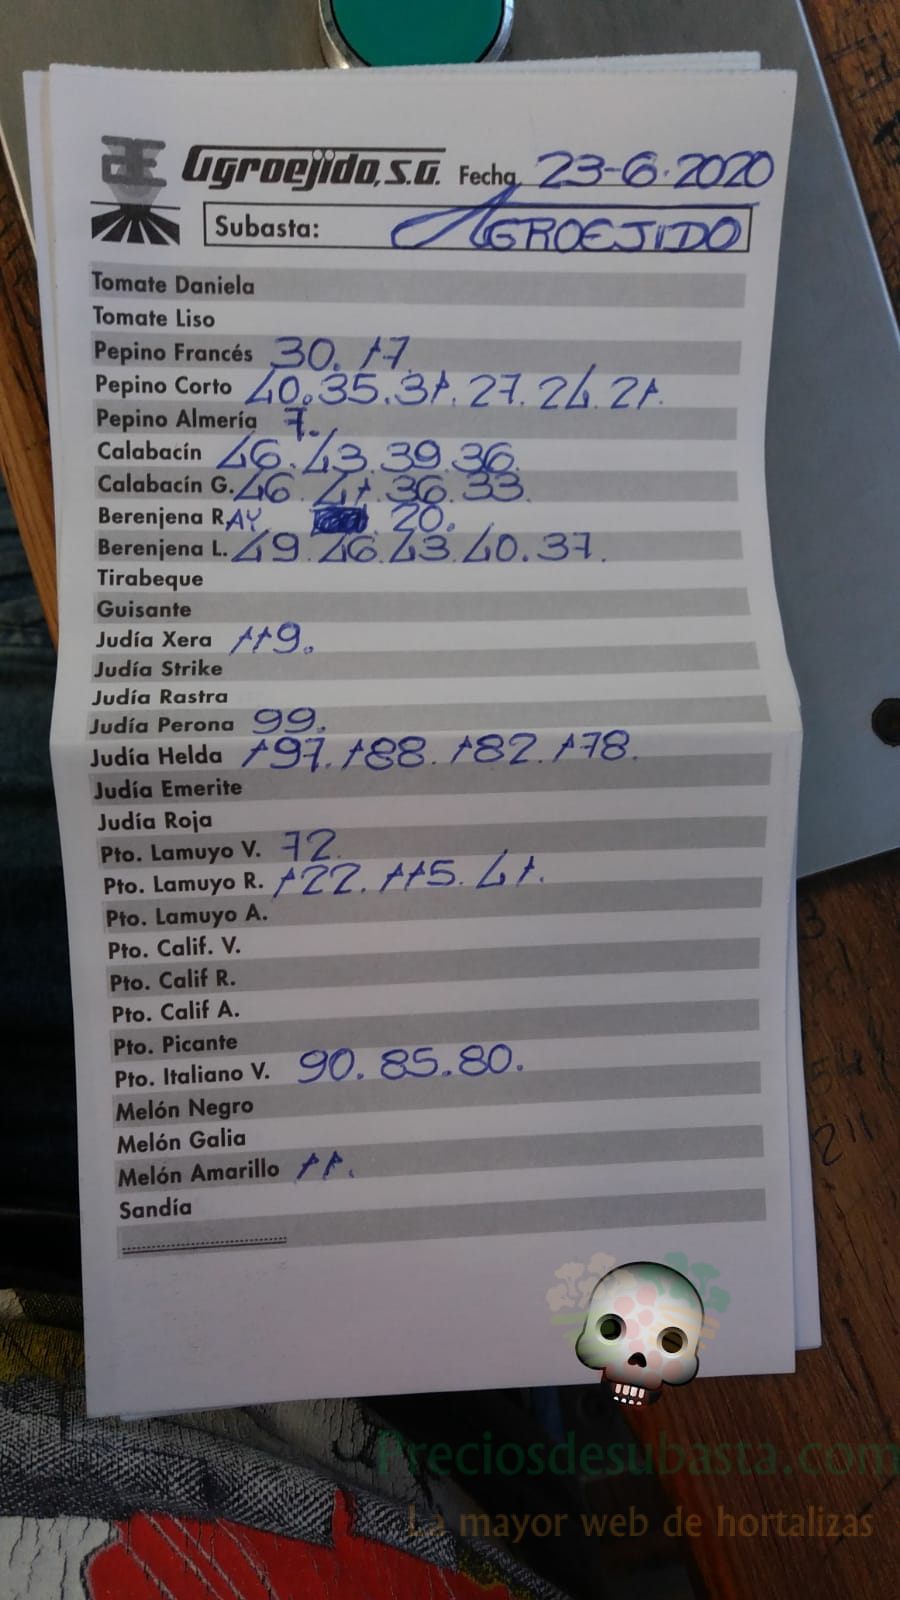 Agroejido, S.A. Fecha 23-6-2020
Subasta: AGROEJIDO
Tomate Daniela
Tomate Liso
Pepino Francés 30. 17
Pepino Corto 40.35.31.27.24.21.
Pepino Almería 7.
Calabacín 46.43.39.36.
Calabacín G. 46.41.36.33.
Berenjena RAY. 20.
Berenjena L. 49.46.43.40.37.
Tirabeque
Guisante
Judía Xera 119.
Judía Strike
Judía Rastra
Judía Perona 99.
Judía Helda 197.188.182.178.
Judía Emerite
Judía Roja
Pto. Lamuyo V. 72.
Pto. Lamuyo R. 122.115.41.
Pto. Lamuyo A.
Pto. Calif. V.
Pto. Calif R.
Pto. Calif A.
Pto. Picante
Pto. Italiano V. 90.85.80.
Melón Negro
Melón Galia
Melón Amarillo 11.
Sandía
Preciosdesubasta.com
La mayor web de hortalizas